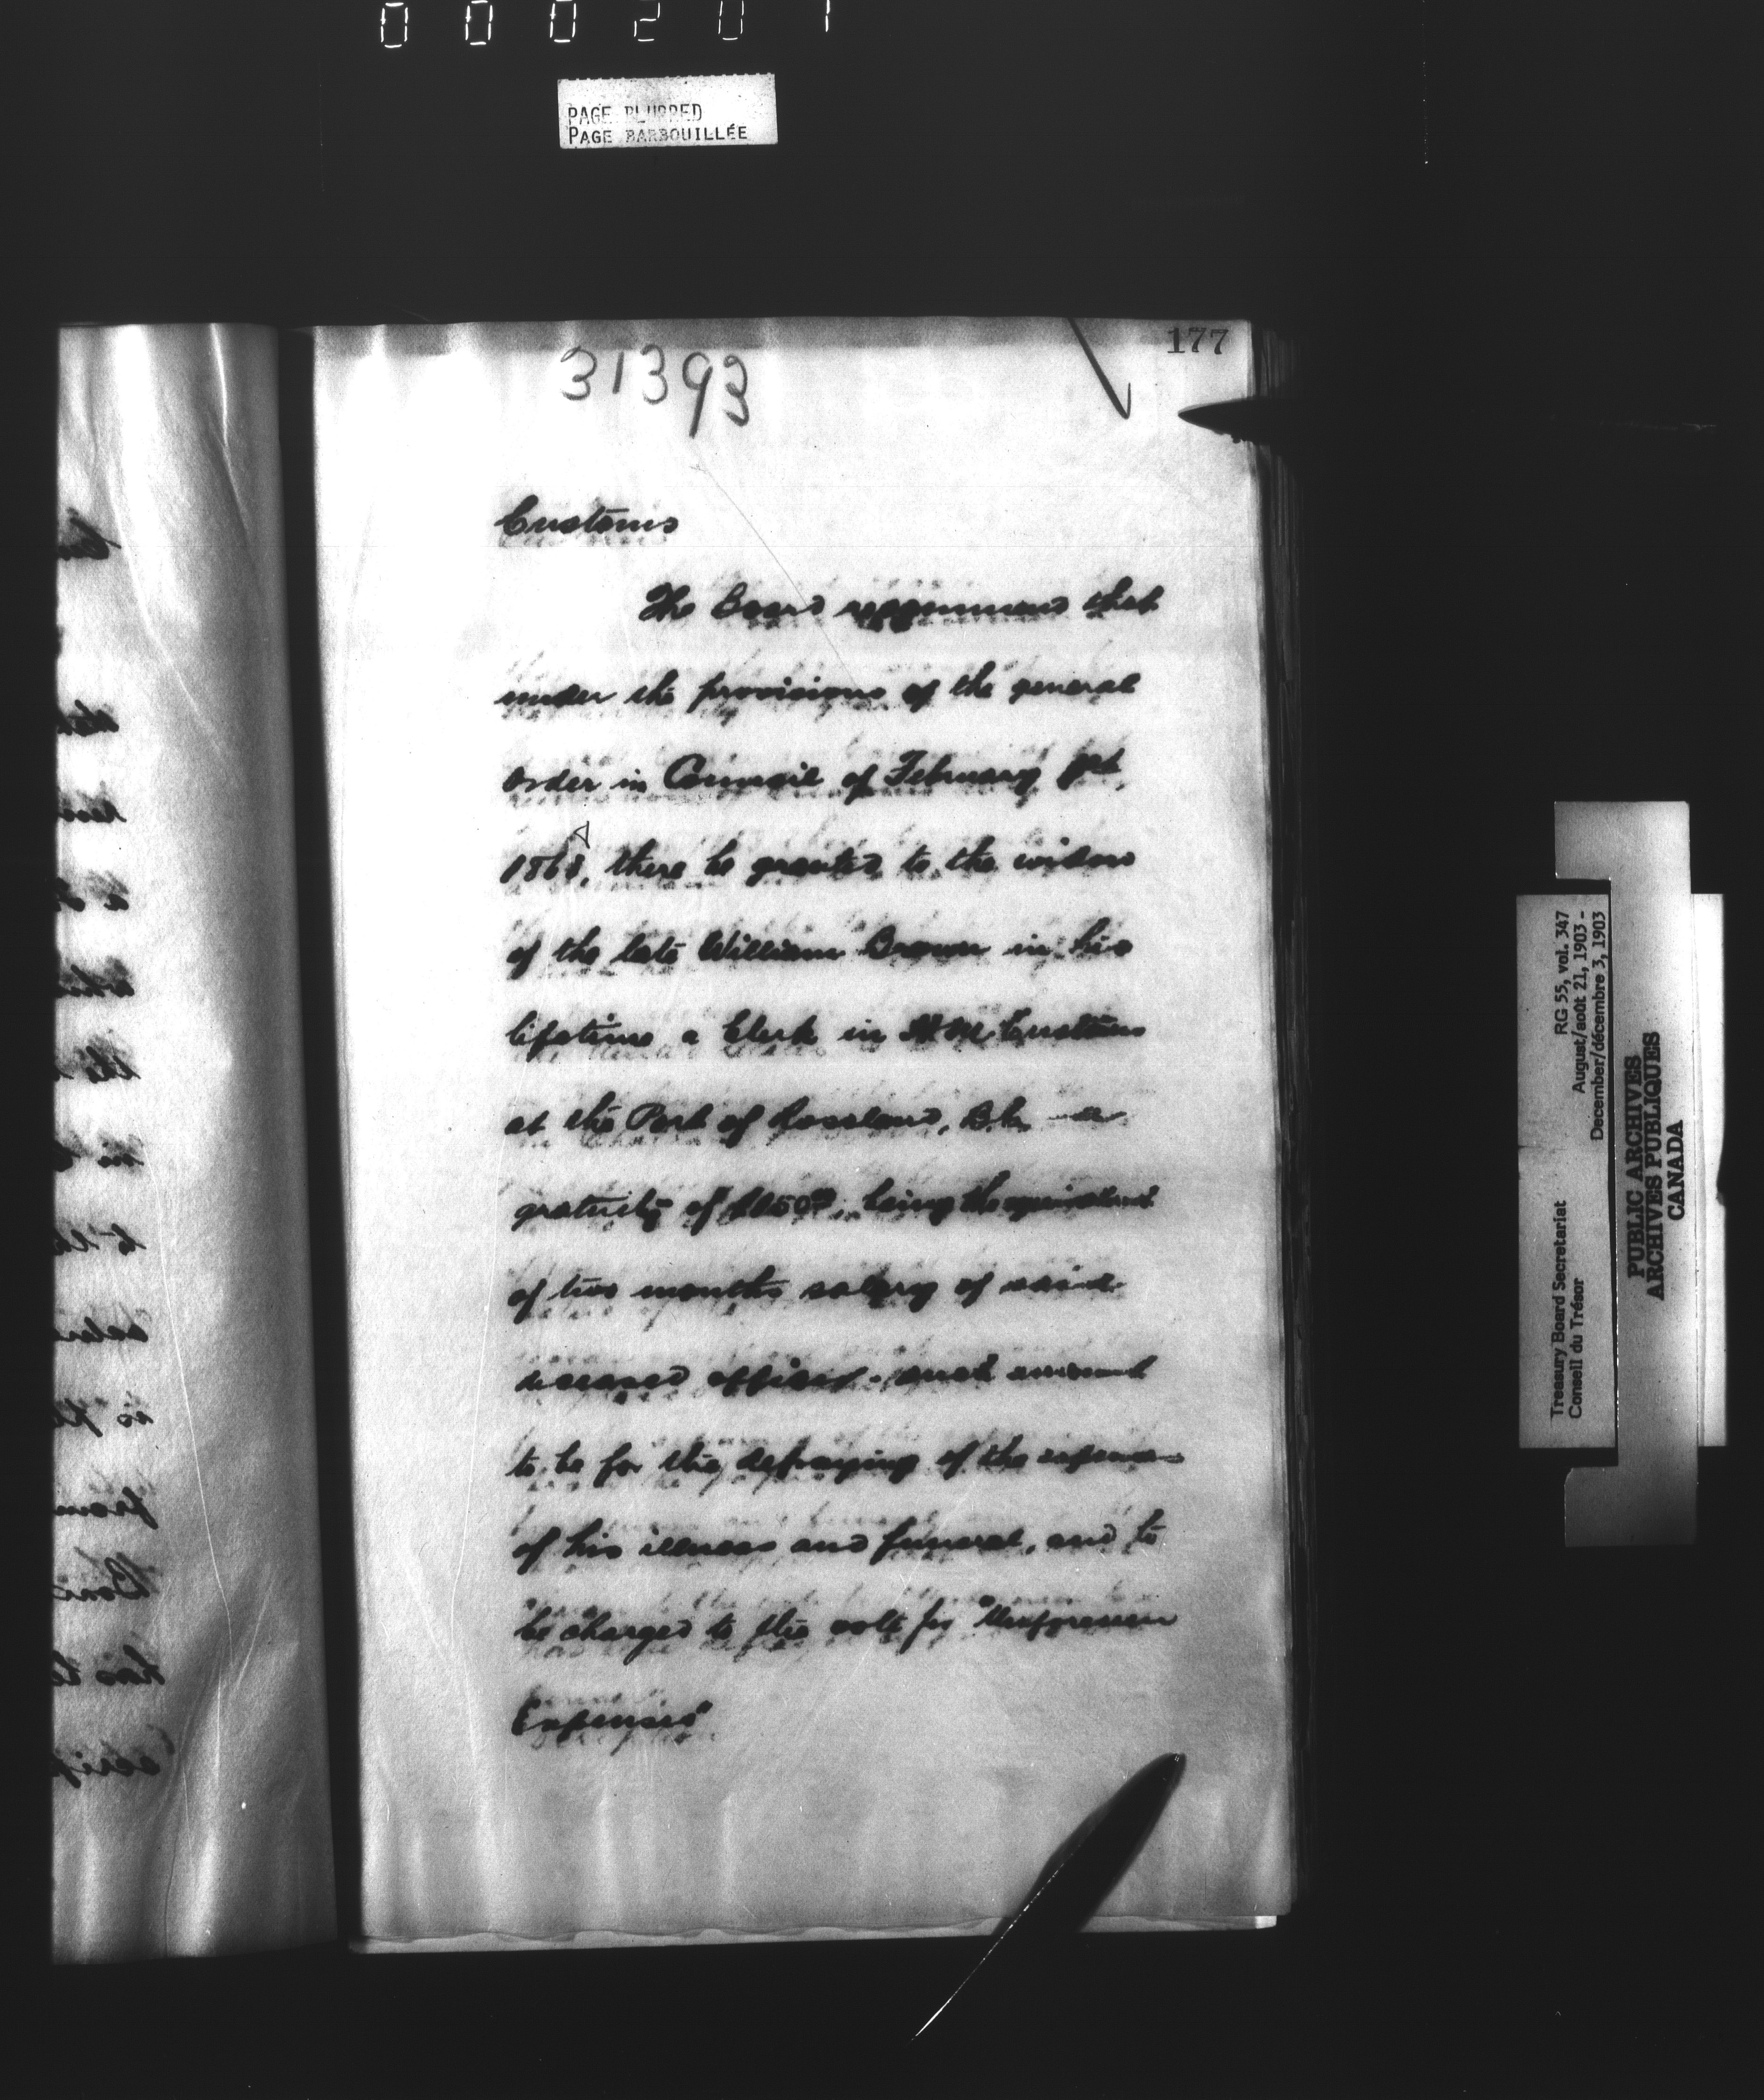 000201
PAGE BLURRED
PAGE BARBOUILLÉE
177
31393
Customs
The Board recommend that
under the provisions of the general
order in Council of February 1st,
1868, there be granted to the widow
of the late William Brown in his
lifetime a Clerk in H M Customs
at the Port of Rossland, B.C. a
gratuity of being the equivalent
of two months salary of said
deceased officer. such amount
to be for the defraying of the expenses
of his illness and funeral, and to
be charged to the vote for "Unforeseen
Expenses"
Treasury Board Secretariat RG 55, vol. 347
Conseil du Trésor August/août 21, 1903 -
December/décembre 3, 1903
PUBLIC ARCHIVES
ARCHIVES PUBLIQUES
CANADA